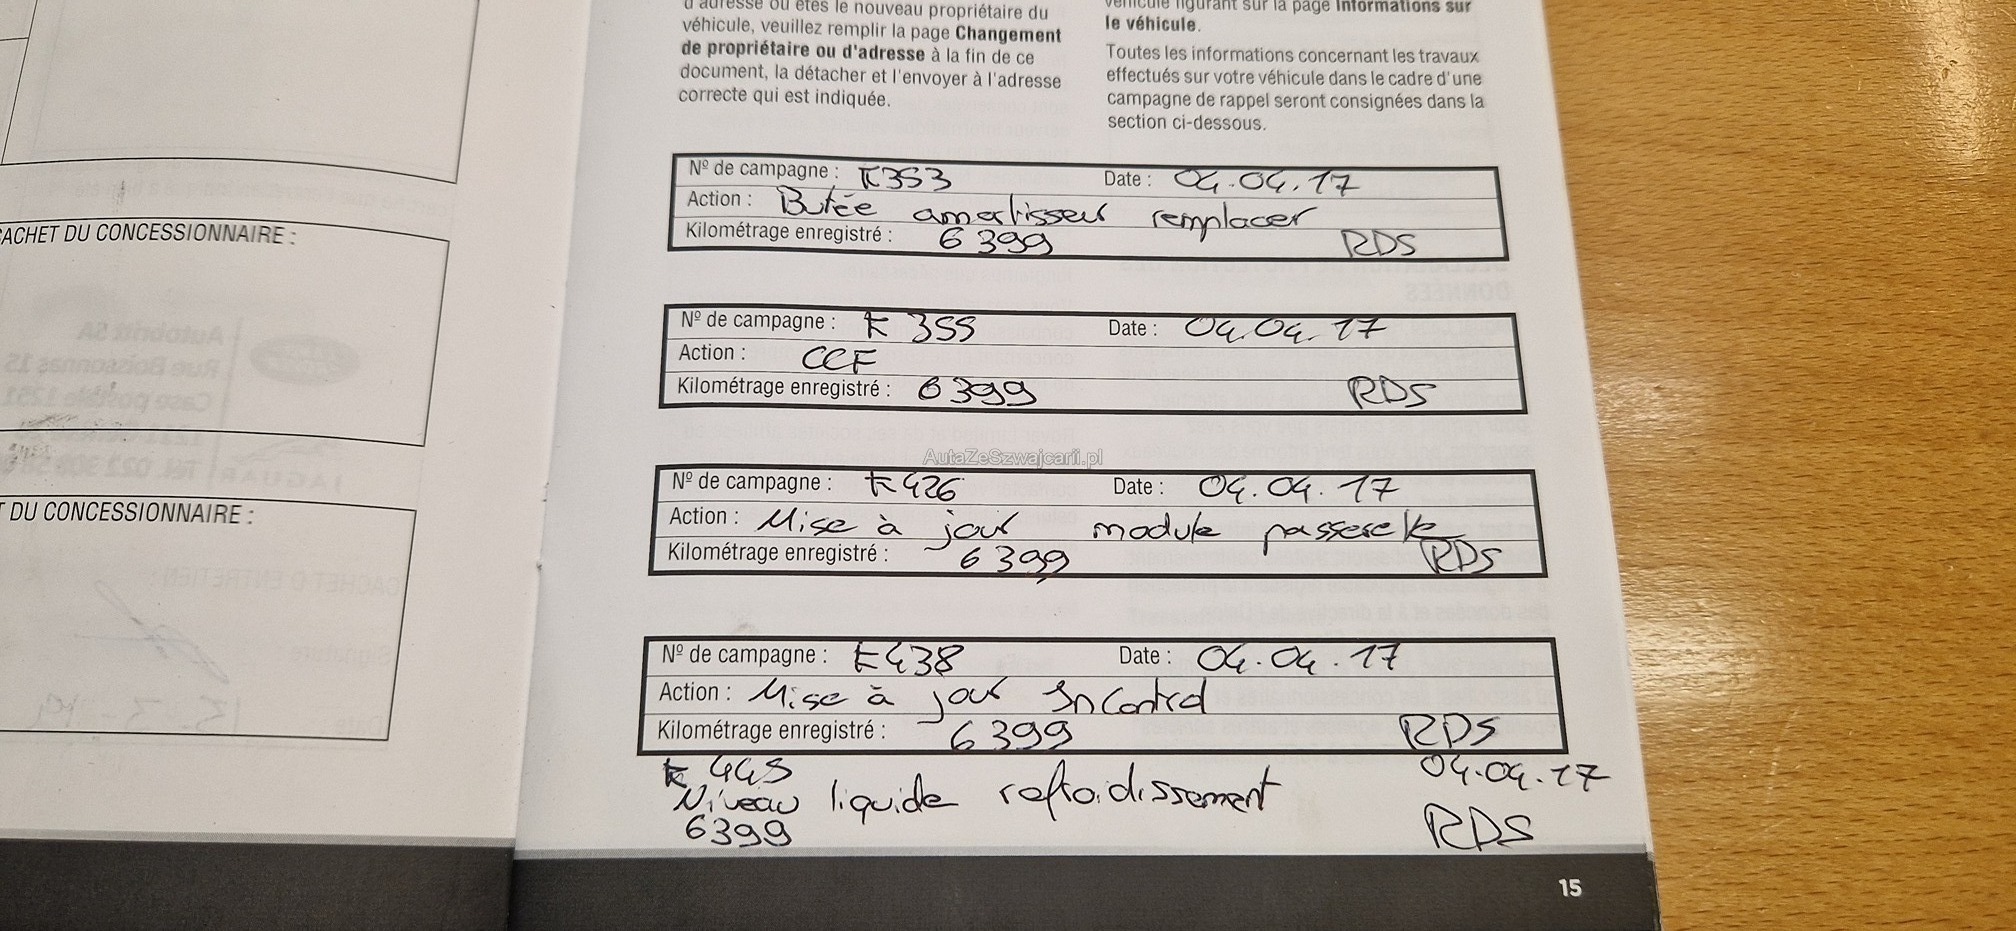 d'adresse ou êtes le nouveau propriétaire du
véhicule, veuillez remplir la page Changement
de propriétaire ou d'adresse à la fin de ce
document, la détacher et l'envoyer à l'adresse
correcte qui est indiquée.
véhicule figurant sur la page Informations sur
le véhicule.
Toutes les informations concernant les travaux
effectués sur votre véhicule dans le cadre d'une
campagne de rappel seront consignées dans la
section ci-dessous.
CACHET DU CONCESSIONNAIRE :
T DU CONCESSIONNAIRE :
Nº de campagne : K353 Date : 04.04.17
Action : Butée amortisseur remplacer
Kilométrage enregistré : 6399 RDS
Nº de campagne : K355 Date : 04.04.17
Action : CCF
Kilométrage enregistré : 6399 RDS
AutaZeSzwajcarii.pl
Nº de campagne : K426 Date : 04.04.17
Action : Mise à jour module passerelle
Kilométrage enregistré : 6399 RDS
Nº de campagne : K438 Date : 04.04.17
Action : Mise à jour InControl
Kilométrage enregistré : 6399 RDS
K445 04.04.17
Niveau liquide refroidissement
6399 RDS
15